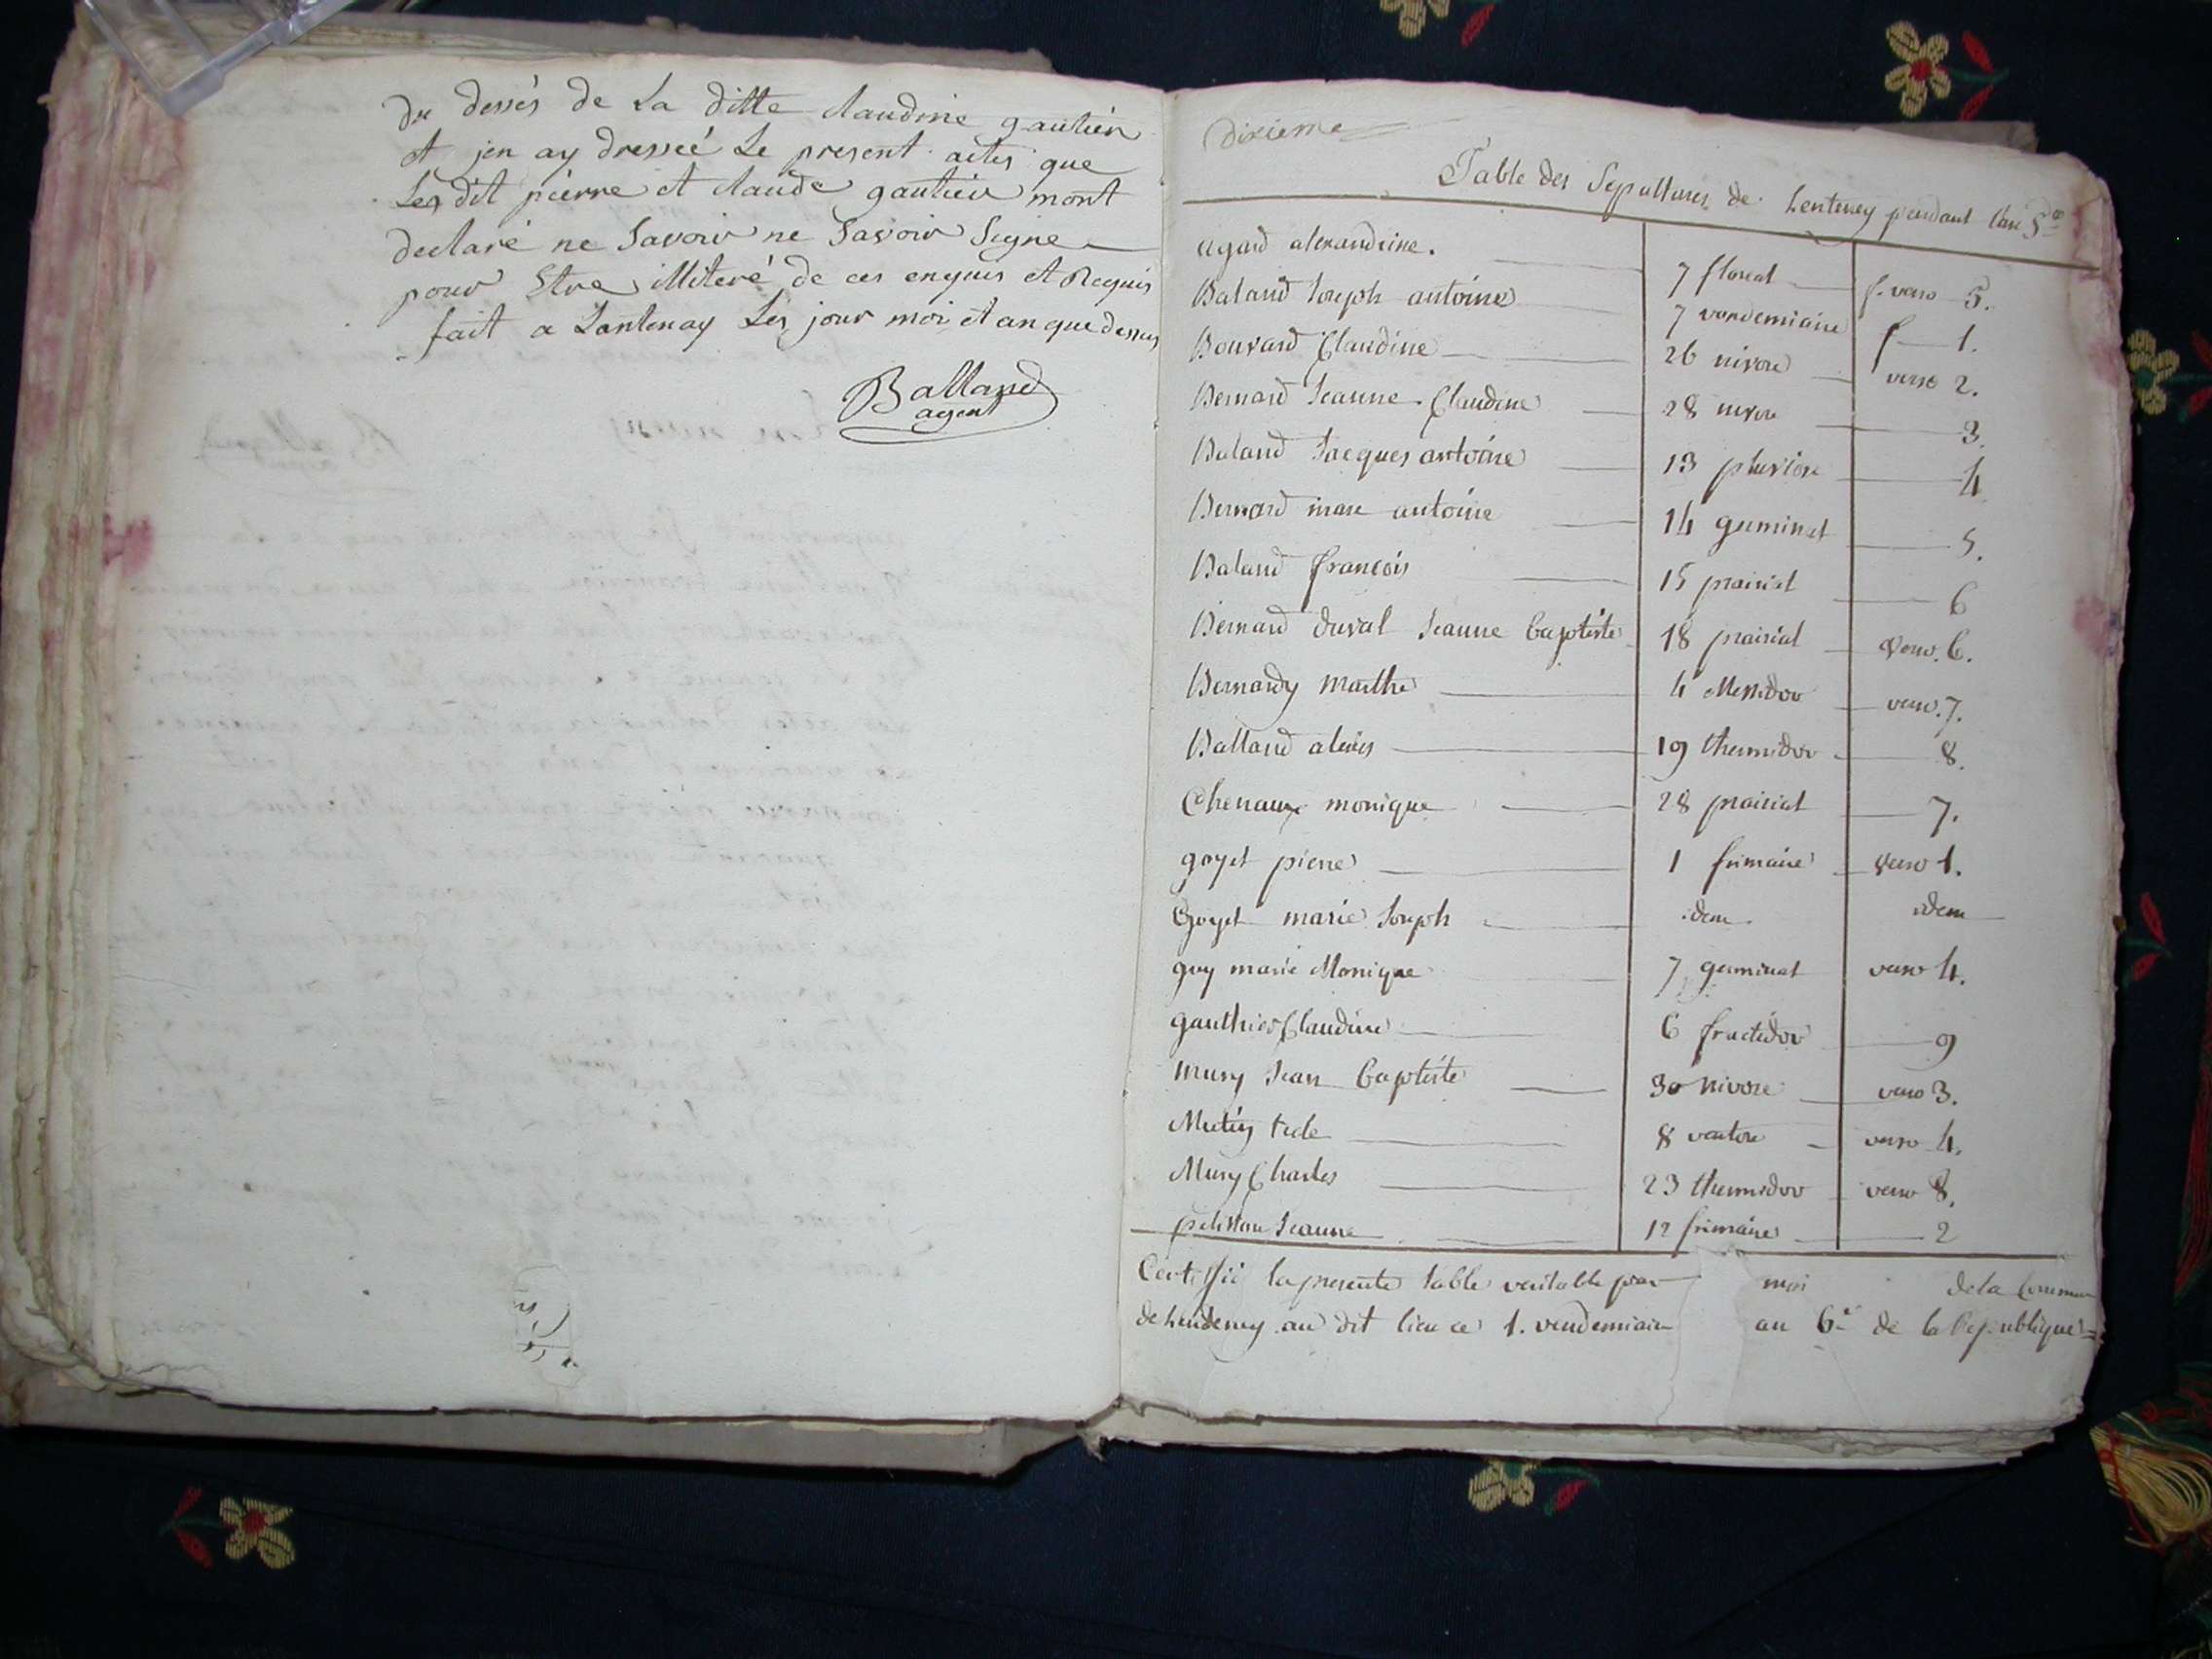 du dessés de La ditte claudine gautier
et jen ay dresseé Le present actes que
Les dit pierre et claude gautier mont
declaré ne Savoir ne Savoir Signe
pour Etre illiteré de ces enquis et Requis
fait a Lantenay Les jour moi et an que dessus
Balland
agent
dixieme
Table des Sepultures de Lentenay pendant l'an 5e
agard alexandrine. 7 floreal f. verso 5.
Baland Joseph antoine 7 vendemiaire f 1.
Bouvard Claudine 26 nivose verso 2.
Bernard Jeanne Claudine 28 nivose 3.
Baland Jacques antoine 13 pluviose 4
Bernard marc antoine 14 germinal 5.
Baland françois 15 prairial 6
Bernard duval Jeanne baptiste 18 prairial verso. 6.
Bernardy Marthe 4 Messidor verso. 7.
Balland alexis 19 thermidor 8.
Chenaux monique 28 prairial 7.
goyet pierre 1 frimaire verso 1.
Goyet marie Joseph idem idem
guy marie Monique 7 germinal verso 4.
gauthier Claudine 6 fructidor 9
mury Jean baptiste 30 Nivose verso 3.
8 ventose verso 4.
Mury Charles 23 thermidor verso 8.
Jeanne 12 frimaire 2
Certifié la presente table veritable par moi de la Commune
de Lendeney au dit lieu ce 1. vendemiaire an 6e de la Republique